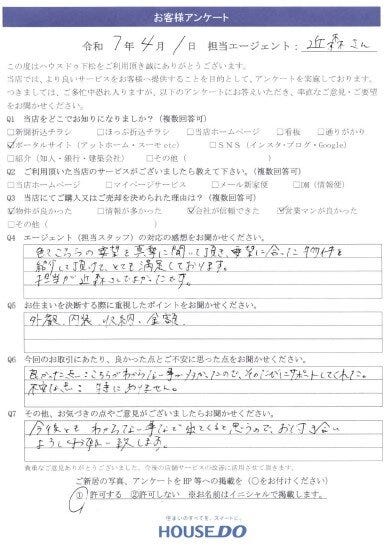 お客様アンケート
令和 7年 4月 1日 担当エージェント: 近森さん
この度はハウスドゥ下松をご利用頂き誠にありがとうございます。
当店では、より良いサービスをお客様へ提供することを目的として、アンケートを実施しております。
つきましては、ご多忙中恐れ入りますが、以下のアンケートにお答えいただき、率直なご意見・ご要望
をお聞かせください。
Q1 当店をどこでお知りになりましたか?(複数回答可)
□新聞折込チラシ □ほっぷ折込チラシ □当店ホームページ □看板 □通りがかり
☑ポータルサイト(アットホーム・スーモetc) □SNS(インスタ・ブログ・Google)
□紹介(知人・銀行・建築会社) □その他( )
Q2 ご利用頂いた当店のサービスがございましたら教えて下さい。(複数回答可)
□当店ホームページ □マイページサービス □メール新家便 □DM(情報便)
Q3 当店にてご購入又はご売却を決められた理由は?(複数回答可)
☑物件が良かった □情報が多かった ☑会社が信頼できた ☑営業マンが良かった
□その他( )
Q4 エージェント(担当スタッフ)の対応の感想をお聞かせください。
色々こちらの要望を真摯に聞いて頂き、要望に合った物件を
紹介して頂けて、とても満足しております。
担当が近森さんでよかったです。
Q5 お住まいを決断する際に重視したポイントをお聞かせください。
外観、内装、収納、金額
Q6 今回のお取引にあたり、良かった点とご不安に思った点をお聞かせください。
良かった点:こちらがわからない事が多かったので、そのつどにサポートしてくれた。
不安な点: 特にありません。
Q7 その他、お気づきの点やご意見がございましたらお聞かせください。
今後とも わからない事など出てくると思うので、お付き合い
よろしくお願い致します。
貴重なご意見ありがとうございました。今後の店舗サービスの改善に活用させて頂きます。
ご新居の写真、アンケートをHP等への掲載を(○をお付けください)
①許可する ②許可しない ※お名前はイニシャルで掲載します。
住まいのすべてを、スマートに。
HOUSEDO